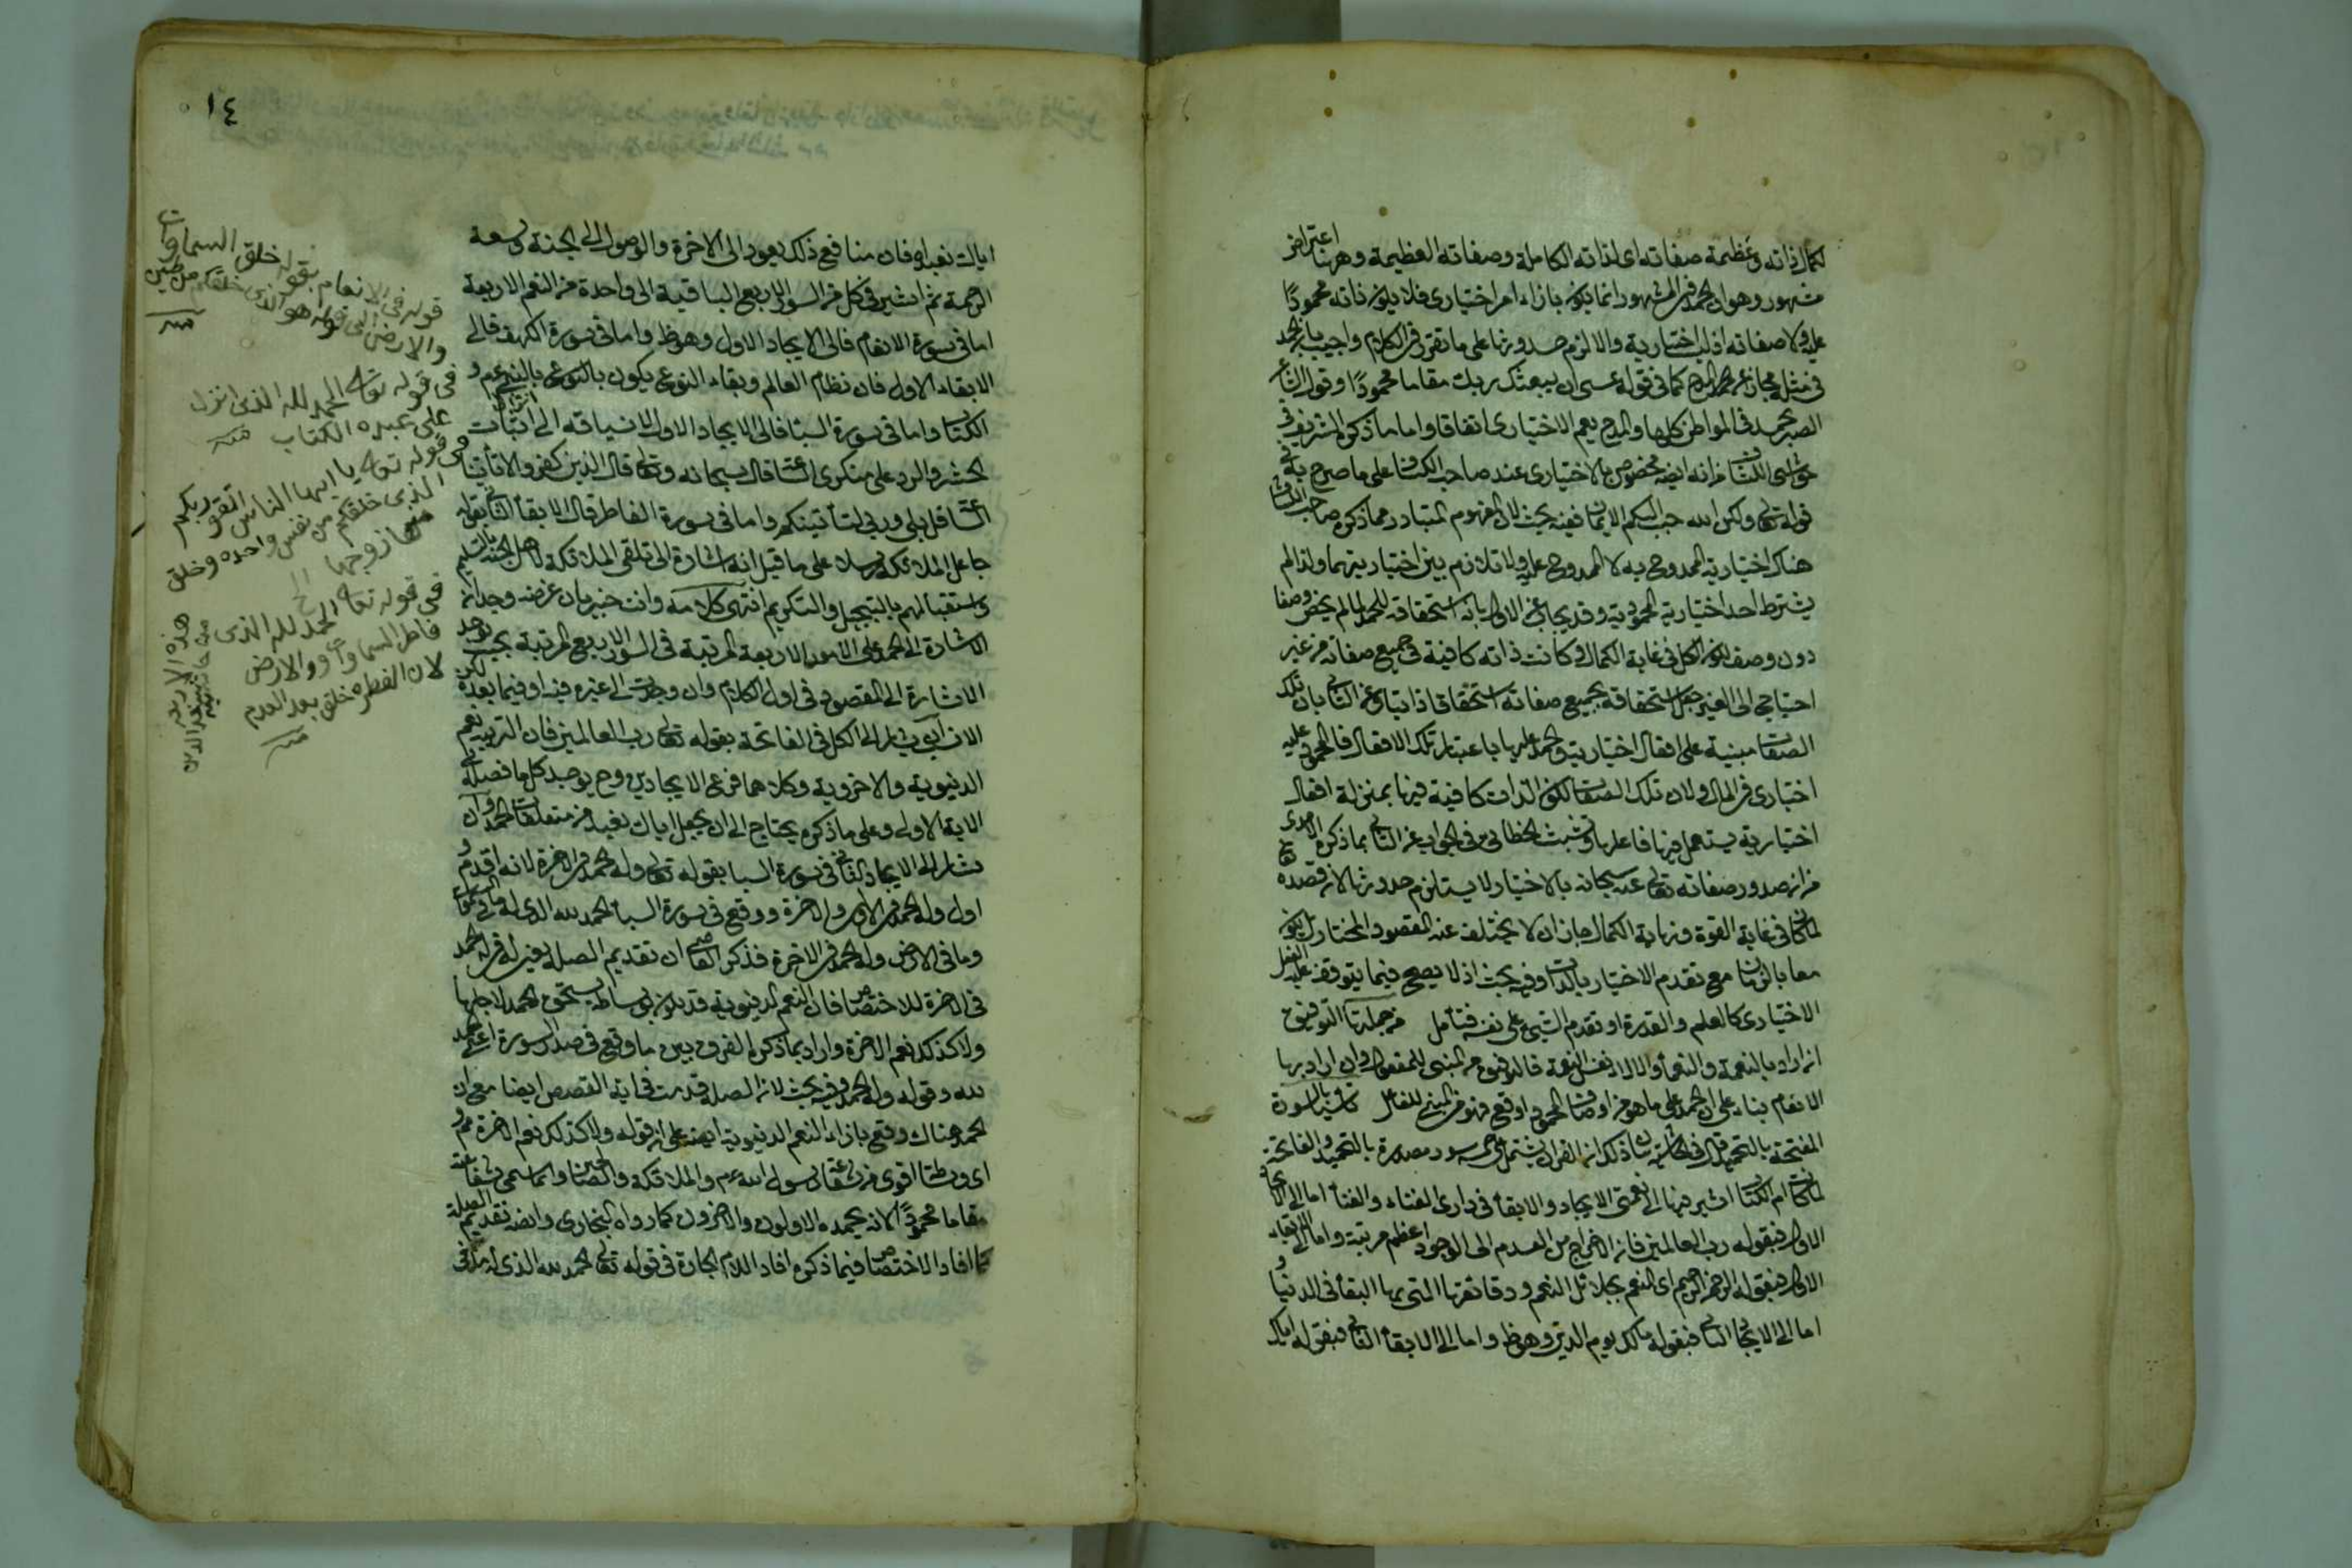 لكمال ذاته وعظيمة صفاته اى لذاته الكاملة وصفاته العظيمة وههنا اعتراض
مشهور وهو ان الحمد فى المشهور انما يكون بازاء امر اختيارى فلا يكون ذاته محمودًا
عليه ولا صفاته اذ ليست اختيارية والا لزم حدوثها على ما تقرر فى الكلام واجيب بان الحمد
فى مثله مجاز عن المدح كما فى قوله عسى ان يبعثك ربك مقاما محمودًا وقول الشاعر
الصبر يحمد فى المواطن كلها والمدح يعم الاختيارى اتفاقا واما ما ذكره الشريف فى
حواشى الكشاف من انه ايضا مخصوص بالاختيارى عند صاحب الكشاف على ما صرح به فى
قوله تعالى ولكن الله حبب اليكم الايمان ففيه بحث لان المفهوم المتبادر مما ذكره صاحب الكشاف
هناك اختيارية الممدوح به لا الممدوح عليه ولا تلازم بين اختياريتهما ولذا لم
يشترط احد اختيارية المحمود به وقد يجاب عن الاول بانه استحقاقه للحمد لما لم يخص وصفا
دون وصف لكون الكل فى غاية الكمال وكانت ذاته كافية فى جميع صفاته من غير
احتياج الى الغير جعل استحقاقه بجميع صفاته استحقاقا ذاتيا وعن الثانى بان تلك
الصفات مبنية على افعال اختيارية والحمد عليها باعتبار تلك الافعال فالمحمود عليه
اختيارى فى المال ولان تلك الصفات لكون الذات كافية فيها بمنزلة افعال
اختيارية يستعمل فيها فاعلها وتشبث الخطائى فى الجواب عن الثانى بما ذكره الامدى
من ان صدور صفاته تعالى عنه سبحانه بالاختيار لا يستلزم حدوثها لان قصده تعالى
لما كان فى غاية القوة ونهاية الكمال جاز ان لا يختلف عنه المقصود المختار بل يكون
معا بالزمان مع تقدم الاختيار بالذات وفيه بحث اذ لا يصح فيما يتوقف عليه الفعل
الاختيارى كالعلم والقدرة او تقدم الشئ على نفسه فتأمل من جملتها التوفيق
ان اراد بالنعمة والنعماء والالاء نفس النعمة فالتوفيق من المبنى للمفعول وان اراد بها
الانعام بناء على ان الحمد على ما هو من اوصاف المحمود اوقع فهو من المبنى للفاعل تأسيا بالسورة
المفتتحة بالتحميد قال فى الحاشية ذكر ان القران يشتمل على خمس سور مصدرة بالتحميد والفاتحة
لما كانت ام الكتاب اشير فيها الى نعمتى الايجاد والابقاء فى دارى الفناء والبقاء اما الى الايجاد
الاول فبقوله رب العالمين فان الاخراج من العدم الى الوجود اعظم مرتبة واما الى الابقاء
الاول فبقوله الرحمن الرحيم اى المنعم بجلائل النعم ودقائقها التى بها البقاء فى الدنيا و
اما الى الايجاد الثانى فبقوله مالك يوم الدين وهو ظ واما الى الابقاء الثانى فبقوله اياك
١٤
اياك نعبد فان منافع ذلك يعود الى الاخرة والوصول الى الجنة وسعة
الرحمة ثم اشير فى كل من السور الاربع الباقية الى واحدة من النعم الاربعة
اما فى سورة الانعام فالى الايجاد الاول وهو ظ واما فى سورة الكهف فالى
الابقاء الاول فان نظام العالم وبقاء النوع يكون بالنبى عم و
انزال
الكتاب واما فى سورة السبأ فالى الايجاد الاول لانسياقه الى اثبات
الحشر والرد على منكرى الساعة قال سبحانه وتعالى قال الذين كفروا لا تأتينا
الساعة قل بلى وربى لتأتينكم واما فى سورة الفاطر فالى الابقاء الثانى بقوله
جاعل الملائكة رسلا على ما قيل انه اشارة الى تلقى الملائكة لاهل الجنة بالتسليم
واستقبالهم بالتبجيل والتكريم انتهى كلامه وانت خبير بان غرضه وجدان
الاشارة الى الحمد على الامور الاربعة المرتبة فى السور الاربع المرتبة بحيث يوجد
الاشارة الى المقصود فى اول الكلام وان وجدت الى غيره فيه او فيما بعده لكن
الان آبى يشار الى الكل فى الفاتحة بقوله تعالى رب العالمين فان التربية يعم
الدنيوية والاخروية وكلاهما فرع الايجادين وح يوجد كل ما فصله فى
الاية الاولى وعلى ما ذكره يحتاج الى ان يجعل اياك نعبد من متعلقات الحمد وان
يشار الى الايجاد الثانى فى سورة السبا بقوله تعالى وله الحمد فى الاخرة لانه اقدم و
اول وله الحمد فى الاولى والاخرة ووقع فى سورة السبأ الحمد لله الذى له ما فى السموات
وما فى الارض وله الحمد فى الاخرة فذكر القاضى ان تقديم الصلة يعنى له فى له الحمد
فى الاخرة للاختصاص فان النعم الدنيوية قد يكون بوساطة من يستحق الحمد لاجلها
ولا كذلك نعم الاخرة واراد بما ذكره الفرق بين ما وقع فى صدر السورة اعنى الحمد
لله وقوله وله الحمد وفيه بحث لان الصلة قدمت فى اية القصص ايضا مع ان
الحمد هناك وقع بازاء النعم الدنيوية ايضا على ان قوله ولا كذلك نعم الاخرة مم و
اى وساطة اقوى من شفاعة رسول الله عم والملائكة والصالحين واما سمى شفاعته
مقاما محمودًا لانه يحمده الاولون والاخرون كما رواه البخارى وايضا تقديم الصلة
كما افاد الاختصاص فيما ذكره افاد اللام الجارة فى قوله تعالى الحمد لله الذى له ما فى
قوله فى الانعام بقوله خلق السماوات
والارض الى قوله هو الذى خلقكم من طين
منه
فى قوله تعالى الحمد لله الذى انزل
على عبده الكتاب منه
فى قوله تعالى يا ايها الناس اتقوا ربكم
الذى خلقكم من نفس واحدة وخلق
منها زوجها الخ
فى قوله تعالى الحمد لله الذى
فاطر السماوات والارض
لان الفطره خلق بعد العدم
منه
هذه الاربعة